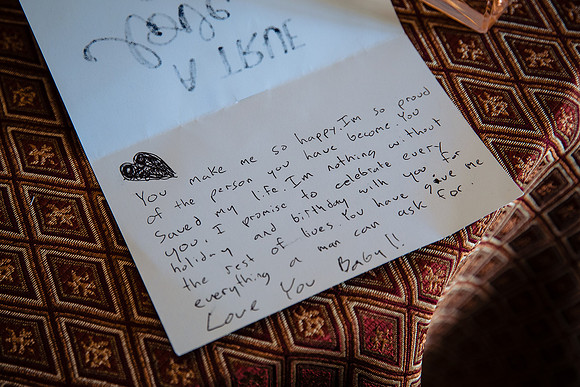 A TRUE
Love
You make me so happy. Im so proud
of the person you have become. You
saved my life. I'm nothing without
you. I promise to celebrate every
holiday and birthday with you for
the rest of lives. You have gave me
everything a man can ask for.
Love You Baby!!